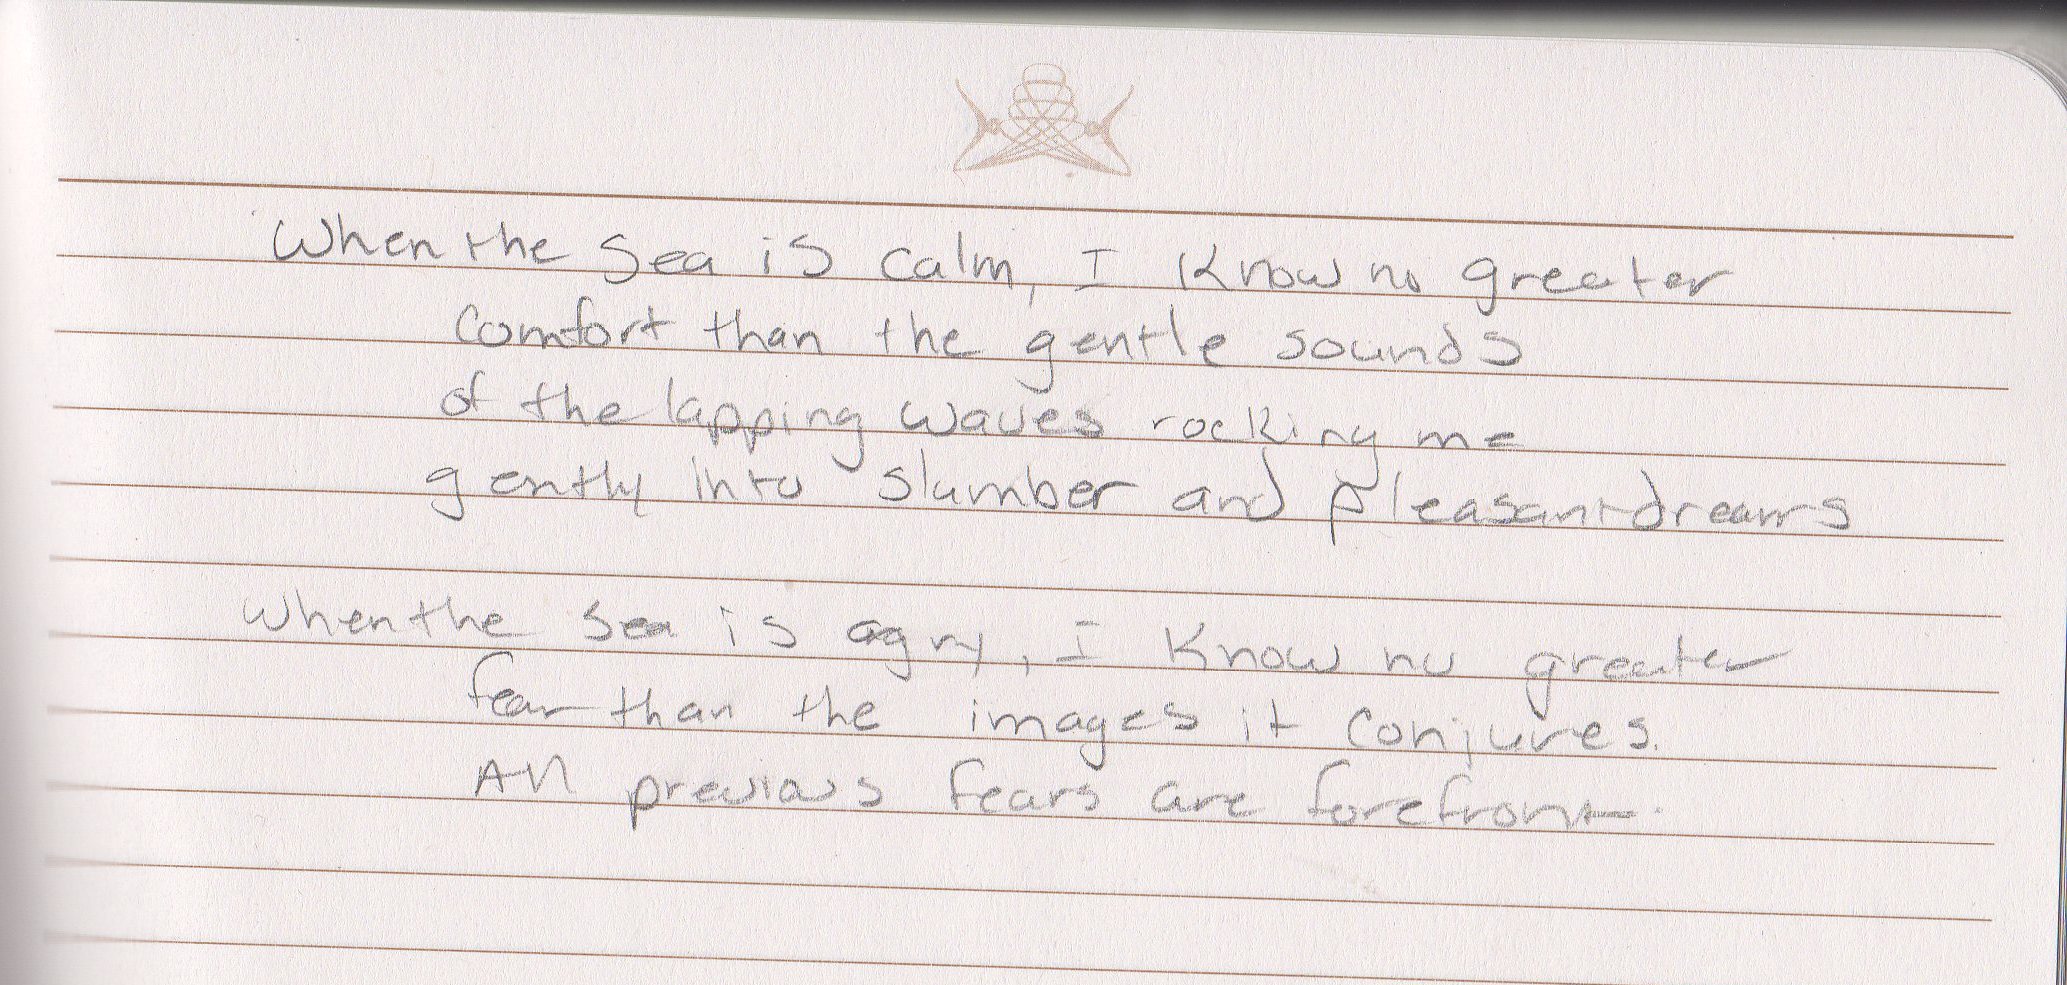 When the sea is calm, I know no greater
comfort than the gentle sounds
of the lapping waves rocking me
gently into slumber and pleasant dreams
When the sea is agry, I know no greater
fear than the images it conjures.
All previous fears are forefront.